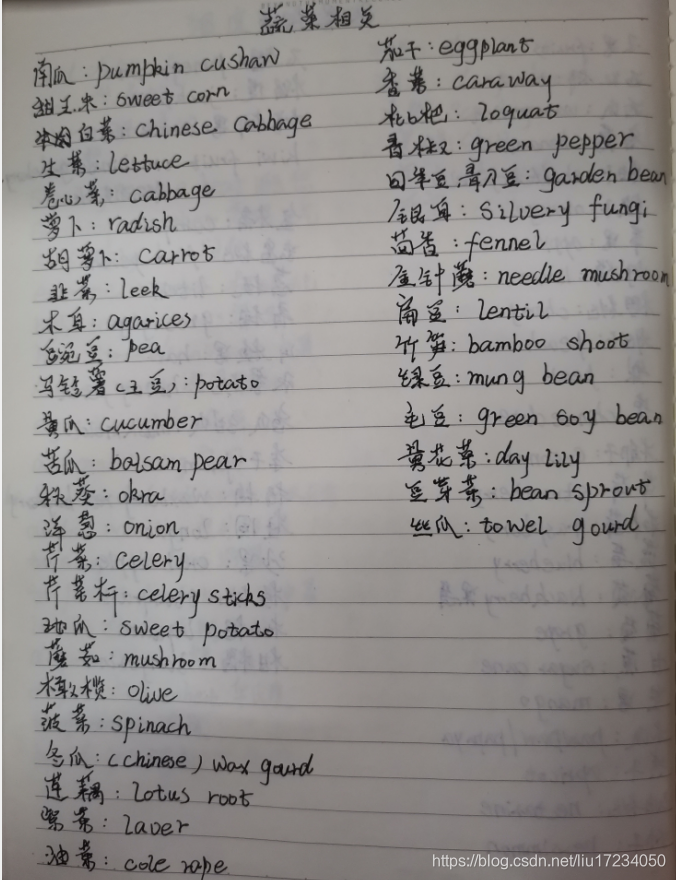 蔬菜相关
南瓜：pumpkin cushaw
甜玉米：sweet corn
白菜：chinese cabbage
生菜：lettuce
卷心菜：cabbage
萝卜：radish
胡萝卜：carrot
韭菜：leek
木耳：agarices
豌豆：pea
马铃薯（土豆）：potato
黄瓜：cucumber
苦瓜：balsam pear
秋葵：okra
洋葱：onion
芹菜：celery
芹菜杆：celery sticks
地瓜：sweet potato
蘑菇：mushroom
橄榄：olive
菠菜：spinach
冬瓜：（chinese）wax gourd
莲藕：lotus root
紫菜：laver
油菜：cole rape
茄子：eggplant
香菜：caraway
枇杷：loquat
青椒：green pepper
四季豆，豆：garden bean
银耳：silvery fungi
茴香：fennel
金针蘑：needle mushroom
扁豆：lentil
竹笋：bamboo shoot
绿豆：mung bean
毛豆：green soy bean
黄花菜：day lily
豆芽菜：bean sprout
丝瓜：towel gourd
https://blog.csdn.net/liu17234050